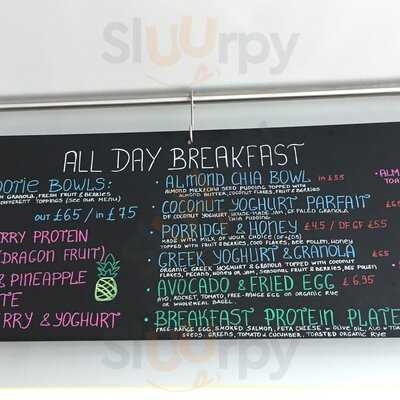 Sluurpy
ALL DAY BREAKFAST
BOWLS:
GRANOLA, FRESH FRUIT & BERRIES
DIFFERENT TOPPINGS (SEE OUR MENU)
OUT £65 / IN £75
PROTEIN
(DRAGON FRUIT)
& PINEAPPLE
& YOGHURT
• ALMOND CHIA BOWL IN £55
ALMOND MILK CHIA SEED PUDDING TOPPED WITH
ALMOND BUTTER, COCONUT FLAKES, FRUIT & BERRIES
• COCONUT YOGHURT PARFAIT
DF COCONUT YOGHURT, HOUSE-MADE JAM, GF PALEO GRANOLA
CHIA PUDDING
• PORRIDGE & HONEY £4.5 / DF GF £55
MADE WITH MILK OF YOUR CHOICE
TOPPED WITH FRUIT & BERRIES, COCO FLAKES, BEE POLLEN, HONEY
• GREEK YOGHURT & GRANOLA £65
ORGANIC GREEK YOGHURT & GRANOLA TOPPED WITH COCONUT
FLAKES, PECANS, HONEY OR JAM, SEASONAL FRUIT & BERRIES, BEE POLLEN
• AVOCADO & FRIED EGG £6.95
AVO, ROCKET, TOMATO, FREE-RANGE EGG ON ORGANIC RYE
OR WHOLEMEAL BAGEL
• BREAKFAST PROTEIN PLATE
FREE-RANGE EGG, SMOKED SALMON, FETA CHEESE w OLIVE OIL,
SEEDS, GREENS, TOMATO & CUCUMBER, TOASTED ORGANIC RYE